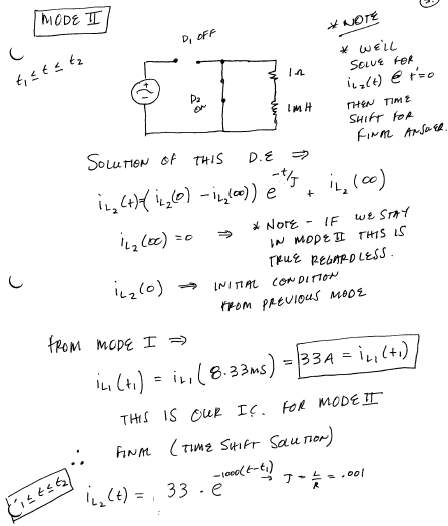 MODE II
* NOTE
* WE'LL
SOLVE FOR
iL2(t) @ t'=0
THEN TIME
SHIFT FOR
FINAL ANSWER.
t1 ≤ t ≤ t2
D1 OFF
D2
ON
1Ω
1mH
SOLUTION OF THIS D.E ⇒
iL2(t)=(iL2(0) - iL2(∞)) e^-t/J + iL2(∞)
iL2(∞) = 0 ⇒ * NOTE - IF WE STAY
IN MODE II THIS IS
TRUE REGARDLESS.
iL2(0) ⇒ INITIAL CONDITION
FROM PREVIOUS MODE
FROM MODE I ⇒
iL1(t1) = iL1(8.33ms) = 33A = iL1(t1)
THIS IS OUR I.C. FOR MODE II
∴ FINAL (TIME SHIFT SOLUTION)
t1 ≤ t ≤ t2
iL2(t) = 33 · e^-1000(t-t1) → J = L/R = .001